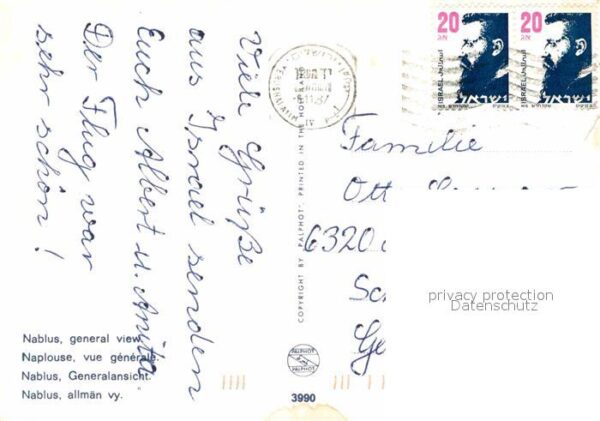 Viele Grüße
aus Israel senden
Euch Albert u. Anita
Der Flug war
sehr schön!
Nablus, general view.
Naplouse, vue générale.
Nablus, Generalansicht.
Nablus, allmän vy.
COPYRIGHT BY "PALPHOT", PRINTED IN THE HOLY LAND
PALPHOT
PALPHOT
3990
20
אג
ISRAEL
ישראל
20
אג
ISRAEL
ישראל
Familie
Ott
6320
privacy protection
Datenschutz